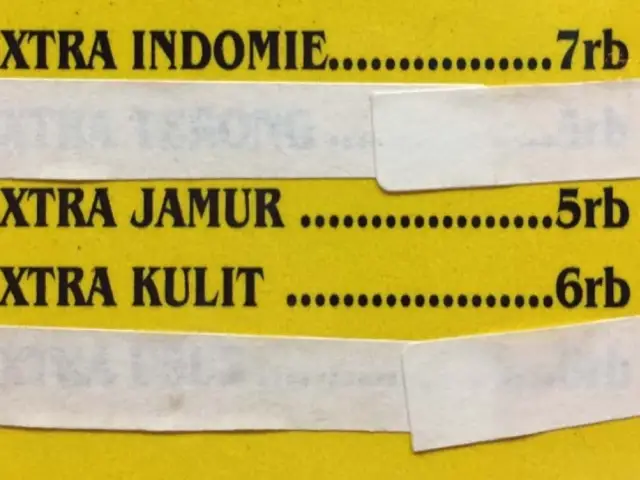 XTRA INDOMIE................7rb
XTRA JAMUR ..................5rb
XTRA KULIT ...................6rb